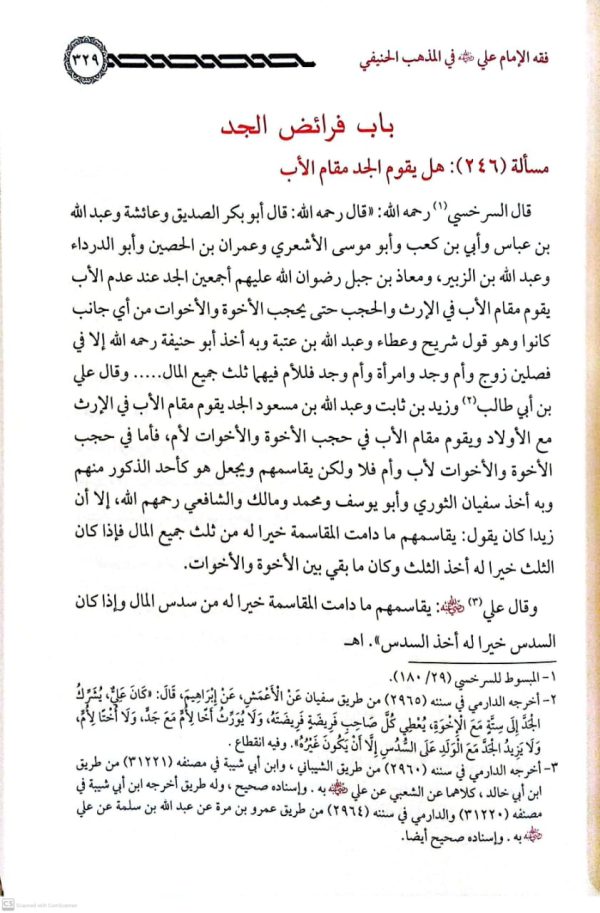 فقه الإمام علي ﵁ في المذهب الحنيفي
٣٢٩
باب فرائض الجد
مسألة (٢٤٦): هل يقوم الجد مقام الأب
قال السرخسي(١) رحمه الله: «قال رحمه الله: قال أبو بكر الصديق وعائشة وعبد الله
بن عباس وأبي بن كعب وأبو موسى الأشعري وعمران بن الحصين وأبو الدرداء
وعبد الله بن الزبير، ومعاذ بن جبل رضوان الله عليهم أجمعين الجد عند عدم الأب
يقوم مقام الأب في الإرث والحجب حتى يحجب الأخوة والأخوات من أي جانب
كانوا وهو قول شريح وعطاء وعبد الله بن عتبة وبه أخذ أبو حنيفة رحمه الله إلا في
فصلين زوج وأم وجد وامرأة وأم وجد فللأم فيهما ثلث جميع المال..... وقال علي
بن أبي طالب(٢) وزيد بن ثابت وعبد الله بن مسعود الجد يقوم مقام الأب في الإرث
مع الأولاد ويقوم مقام الأب في حجب الأخوة والأخوات لأم، فأما في حجب
الأخوة والأخوات لأب وأم فلا ولكن يقاسمهم ويجعل هو كأحد الذكور منهم
وبه أخذ سفيان الثوري وأبو يوسف ومحمد ومالك والشافعي رحمهم الله، إلا أن
زيدا كان يقول: يقاسمهم ما دامت المقاسمة خيرا له من ثلث جميع المال فإذا كان
الثلث خيرا له أخذ الثلث وكان ما بقي بين الأخوة والأخوات.
وقال علي(٣) ﵁: يقاسمهم ما دامت المقاسمة خيرا له من سدس المال وإذا كان
السدس خيرا له أخذ السدس». اهـ
١- المبسوط للسرخسي (٢٩/ ١٨٠).
٢- أخرجه الدارمي في سننه (٢٩٦٥) من طريق سفيان عَنْ الْأَعْمَشِ، عَنْ إِبْرَاهِيمَ، قَالَ: «كَانَ عَلِيٌّ، يُشَرِّكُ
الْجَدَّ إِلَى سِتَّةٍ مَعَ الْإِخْوَةِ، يُعْطِي كُلَّ صَاحِبِ فَرِيضَةٍ فَرِيضَتَهُ، وَلَا يُوَرِّثُ أَخًا لِأُمٍّ مَعَ جَدٍّ، وَلَا أُخْتًا لِأُمٍّ،
وَلَا يَزِيدُ الْجَدَّ مَعَ الْوَلَدِ عَلَى السُّدُسِ إِلَّا أَنْ يَكُونَ غَيْرُهُ». وفيه انقطاع .
٣- أخرجه الدارمي في سننه (٢٩٦٠) من طريق الشيباني ، وابن أبي شيبة في مصنفه (٣١٢٢١) من طريق
ابن أبي خالد ، كلاهما عن الشعبي عن علي ﵁ به . وإسناده صحيح ، وله طريق أخرجه ابن أبي شيبة في
مصنفه (٣١٢٢٠) والدارمي في سننه (٢٩٦٤) من طريق عمرو بن مرة عن عبد الله بن سلمة عن علي
﵁ به . وإسناده صحيح أيضا.
CS Scanned with CamScanner